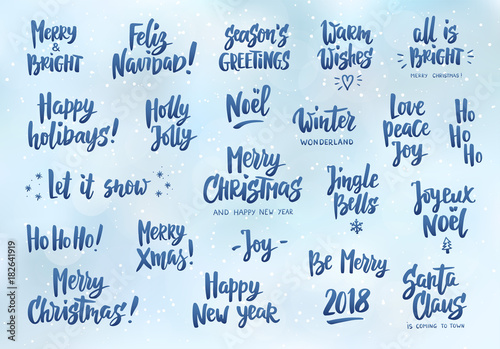 Merry
&
BRIGHT
Feliz
Navidad!
SEASON'S
GREETINGS
WARM
WISHES
all is
BRIGHT
MERRY CHRISTMAS!
Happy
holidays!
Holly
Jolly
Noël
Winter
WONDERLAND
Love
peace
Joy
Ho
Ho
Ho
Let it snow
Merry
CHRISTMAS
AND HAPPY NEW YEAR
Jingle
Bells
Joyeux
Noël
Ho Ho Ho!
Merry
Xmas!
-Joy-
Be Merry
Merry
Christmas!
Happy
New year
2018
Santa
Claus
IS COMING TO TOWN
182641919